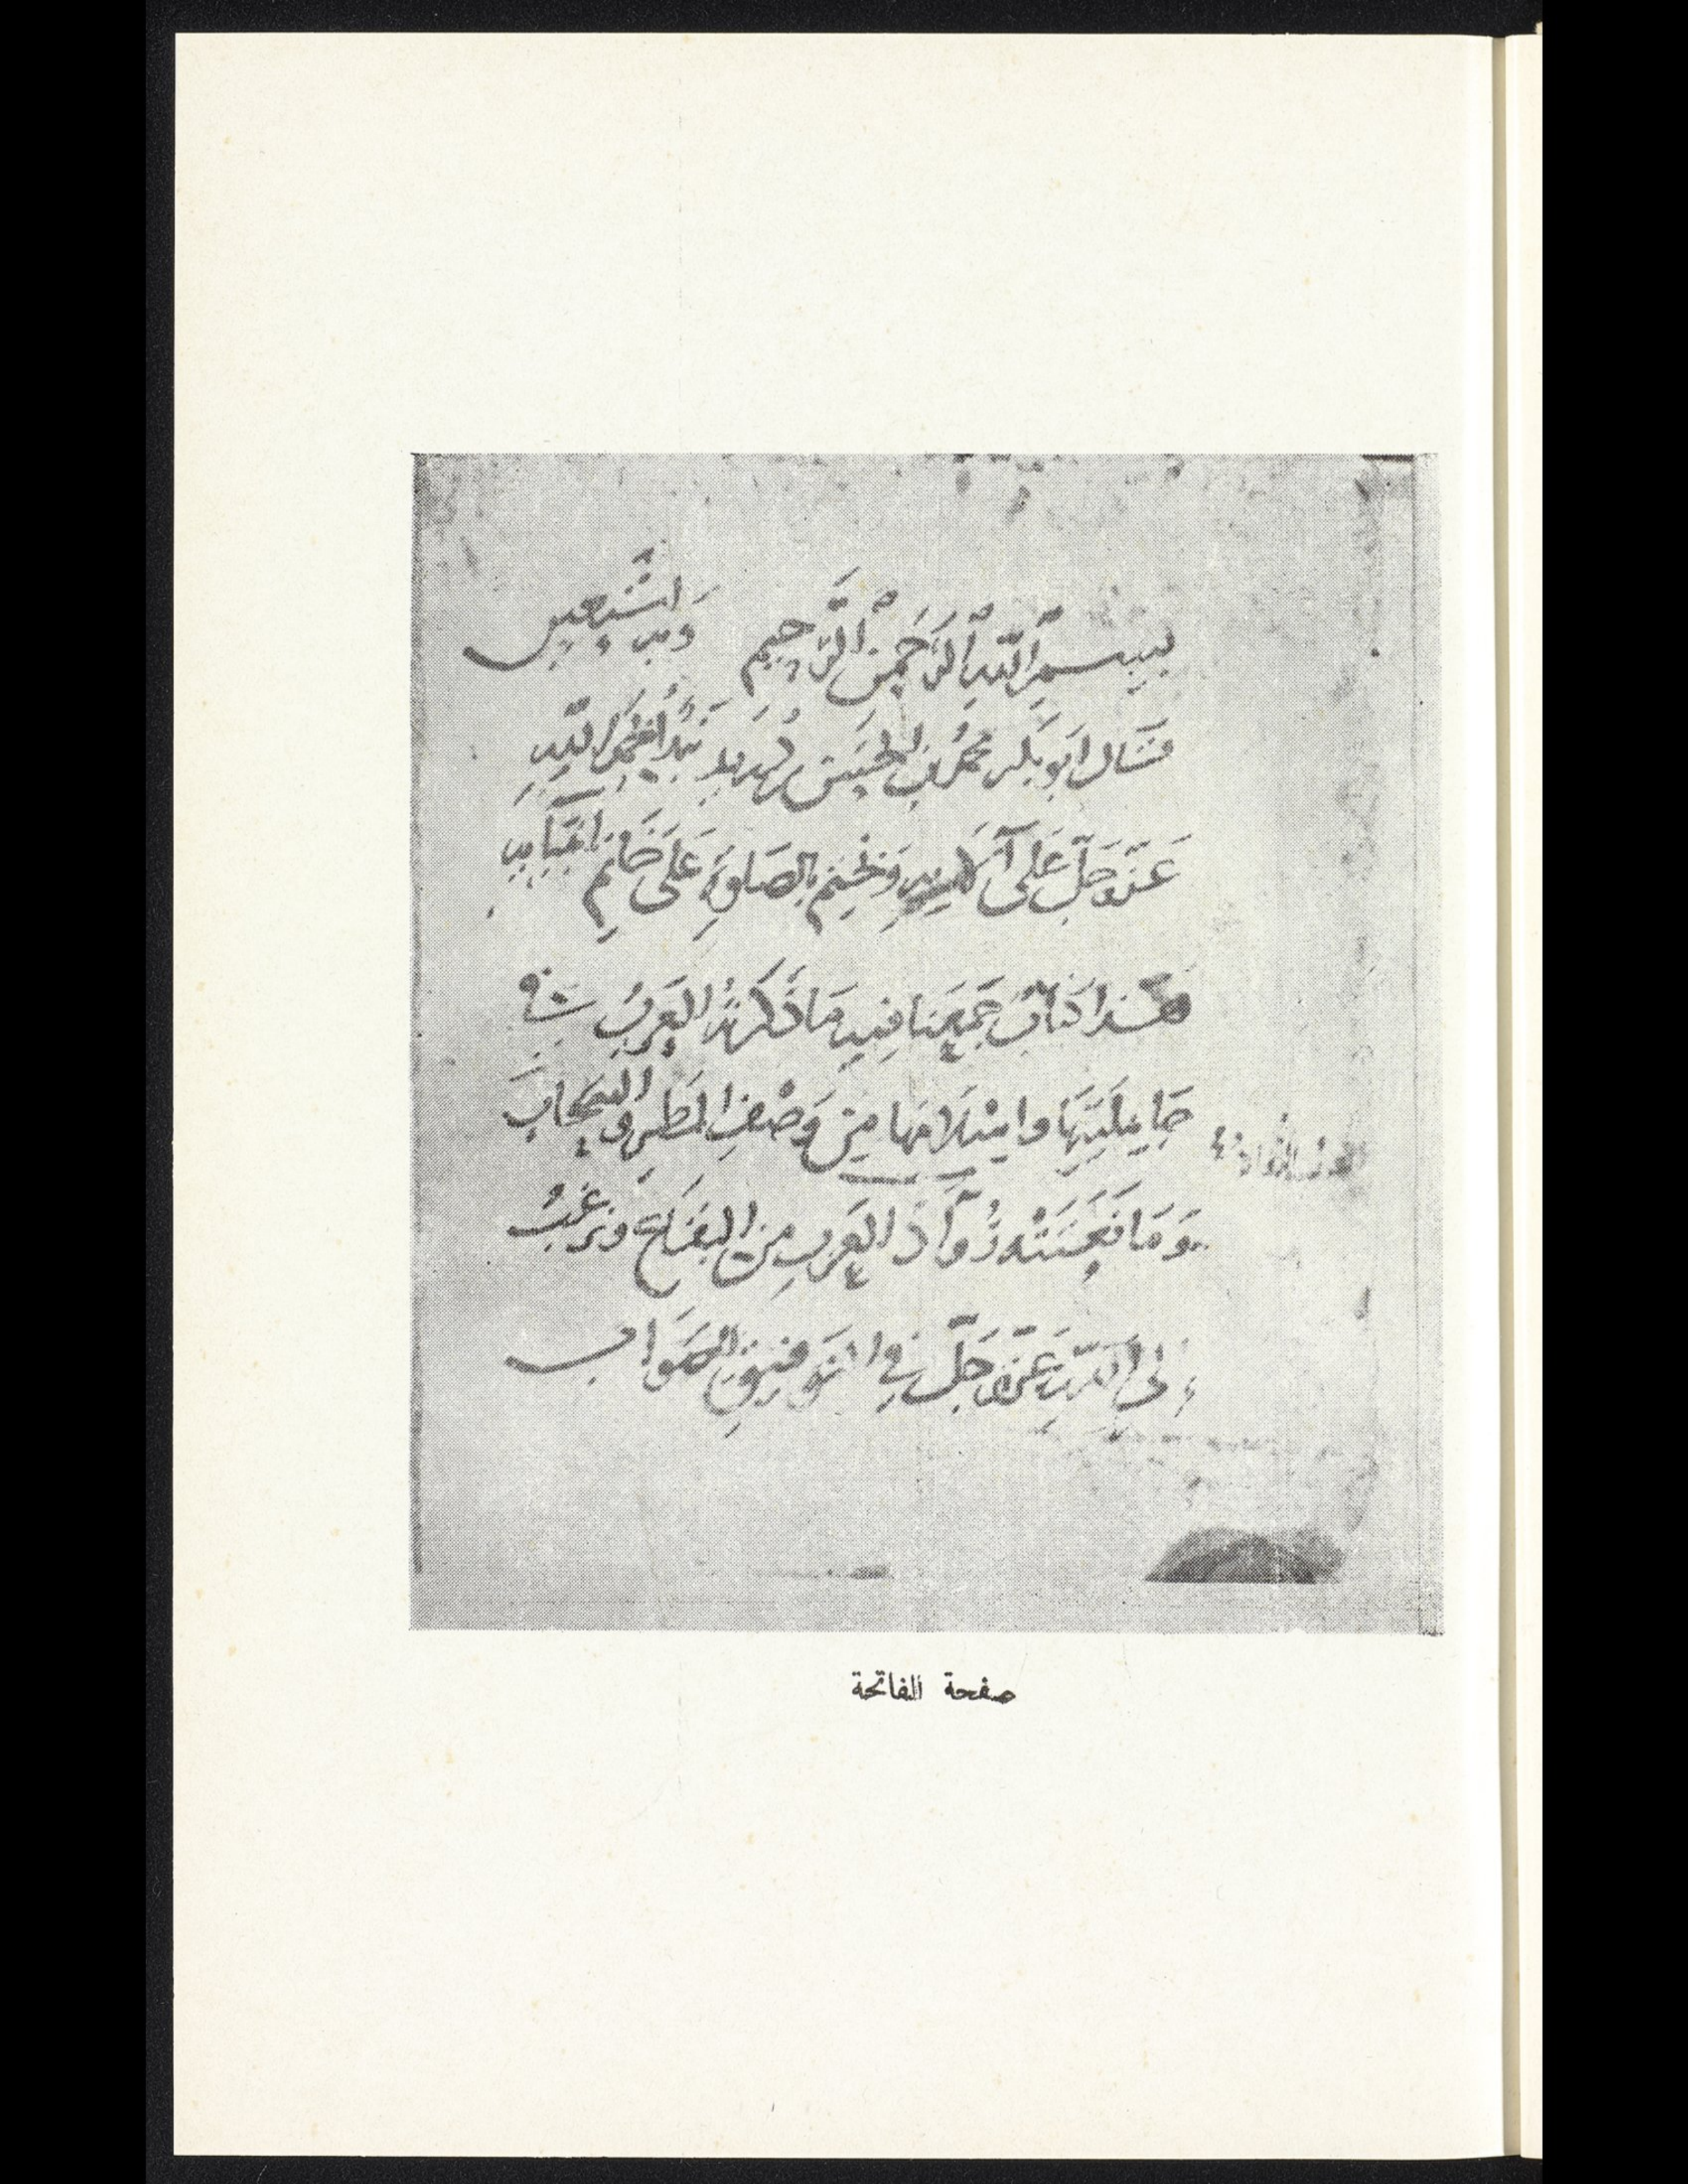 بِسْمِ ٱللَّهِ ٱلرَّحْمٰنِ ٱلرَّحِيمِ وَبِهِ اَسْتَعِينُ
قَالَ اَبُو بَكْرٍ مُحَمَّدُ بنُ الحَسَنِ بنِ دُرَيدٍ نَبْدَأُ بِحَمْدِ اللَّهِ
عَزَّ وَجَلَّ عَلَى آلَائِهِ وَنَخْتِمُ بِالصَّلوةِ عَلَى خَاتَمِ اَنْبِيَائِهِ
هٰذَا كِتَابٌ جَمَعْنَا فِيهِ مَا ذَكَرَتْهُ العَرَبُ فِي
جَاهِلِيَّتِهَا وَاِسْلَامِهَا مِنْ وَصْفِ المَطَرِ وَالسَّحَابِ
وَمَا نَعَتَتْهُ رُوَّادُ العَرَبِ مِنَ البِقَاعِ وَنَرْغَبُ
إِلَى اللَّهِ عَزَّ وَجَلَّ فِي التَّوْفِيقِ لِلصَّوَابِ
صفحة الفاتحة